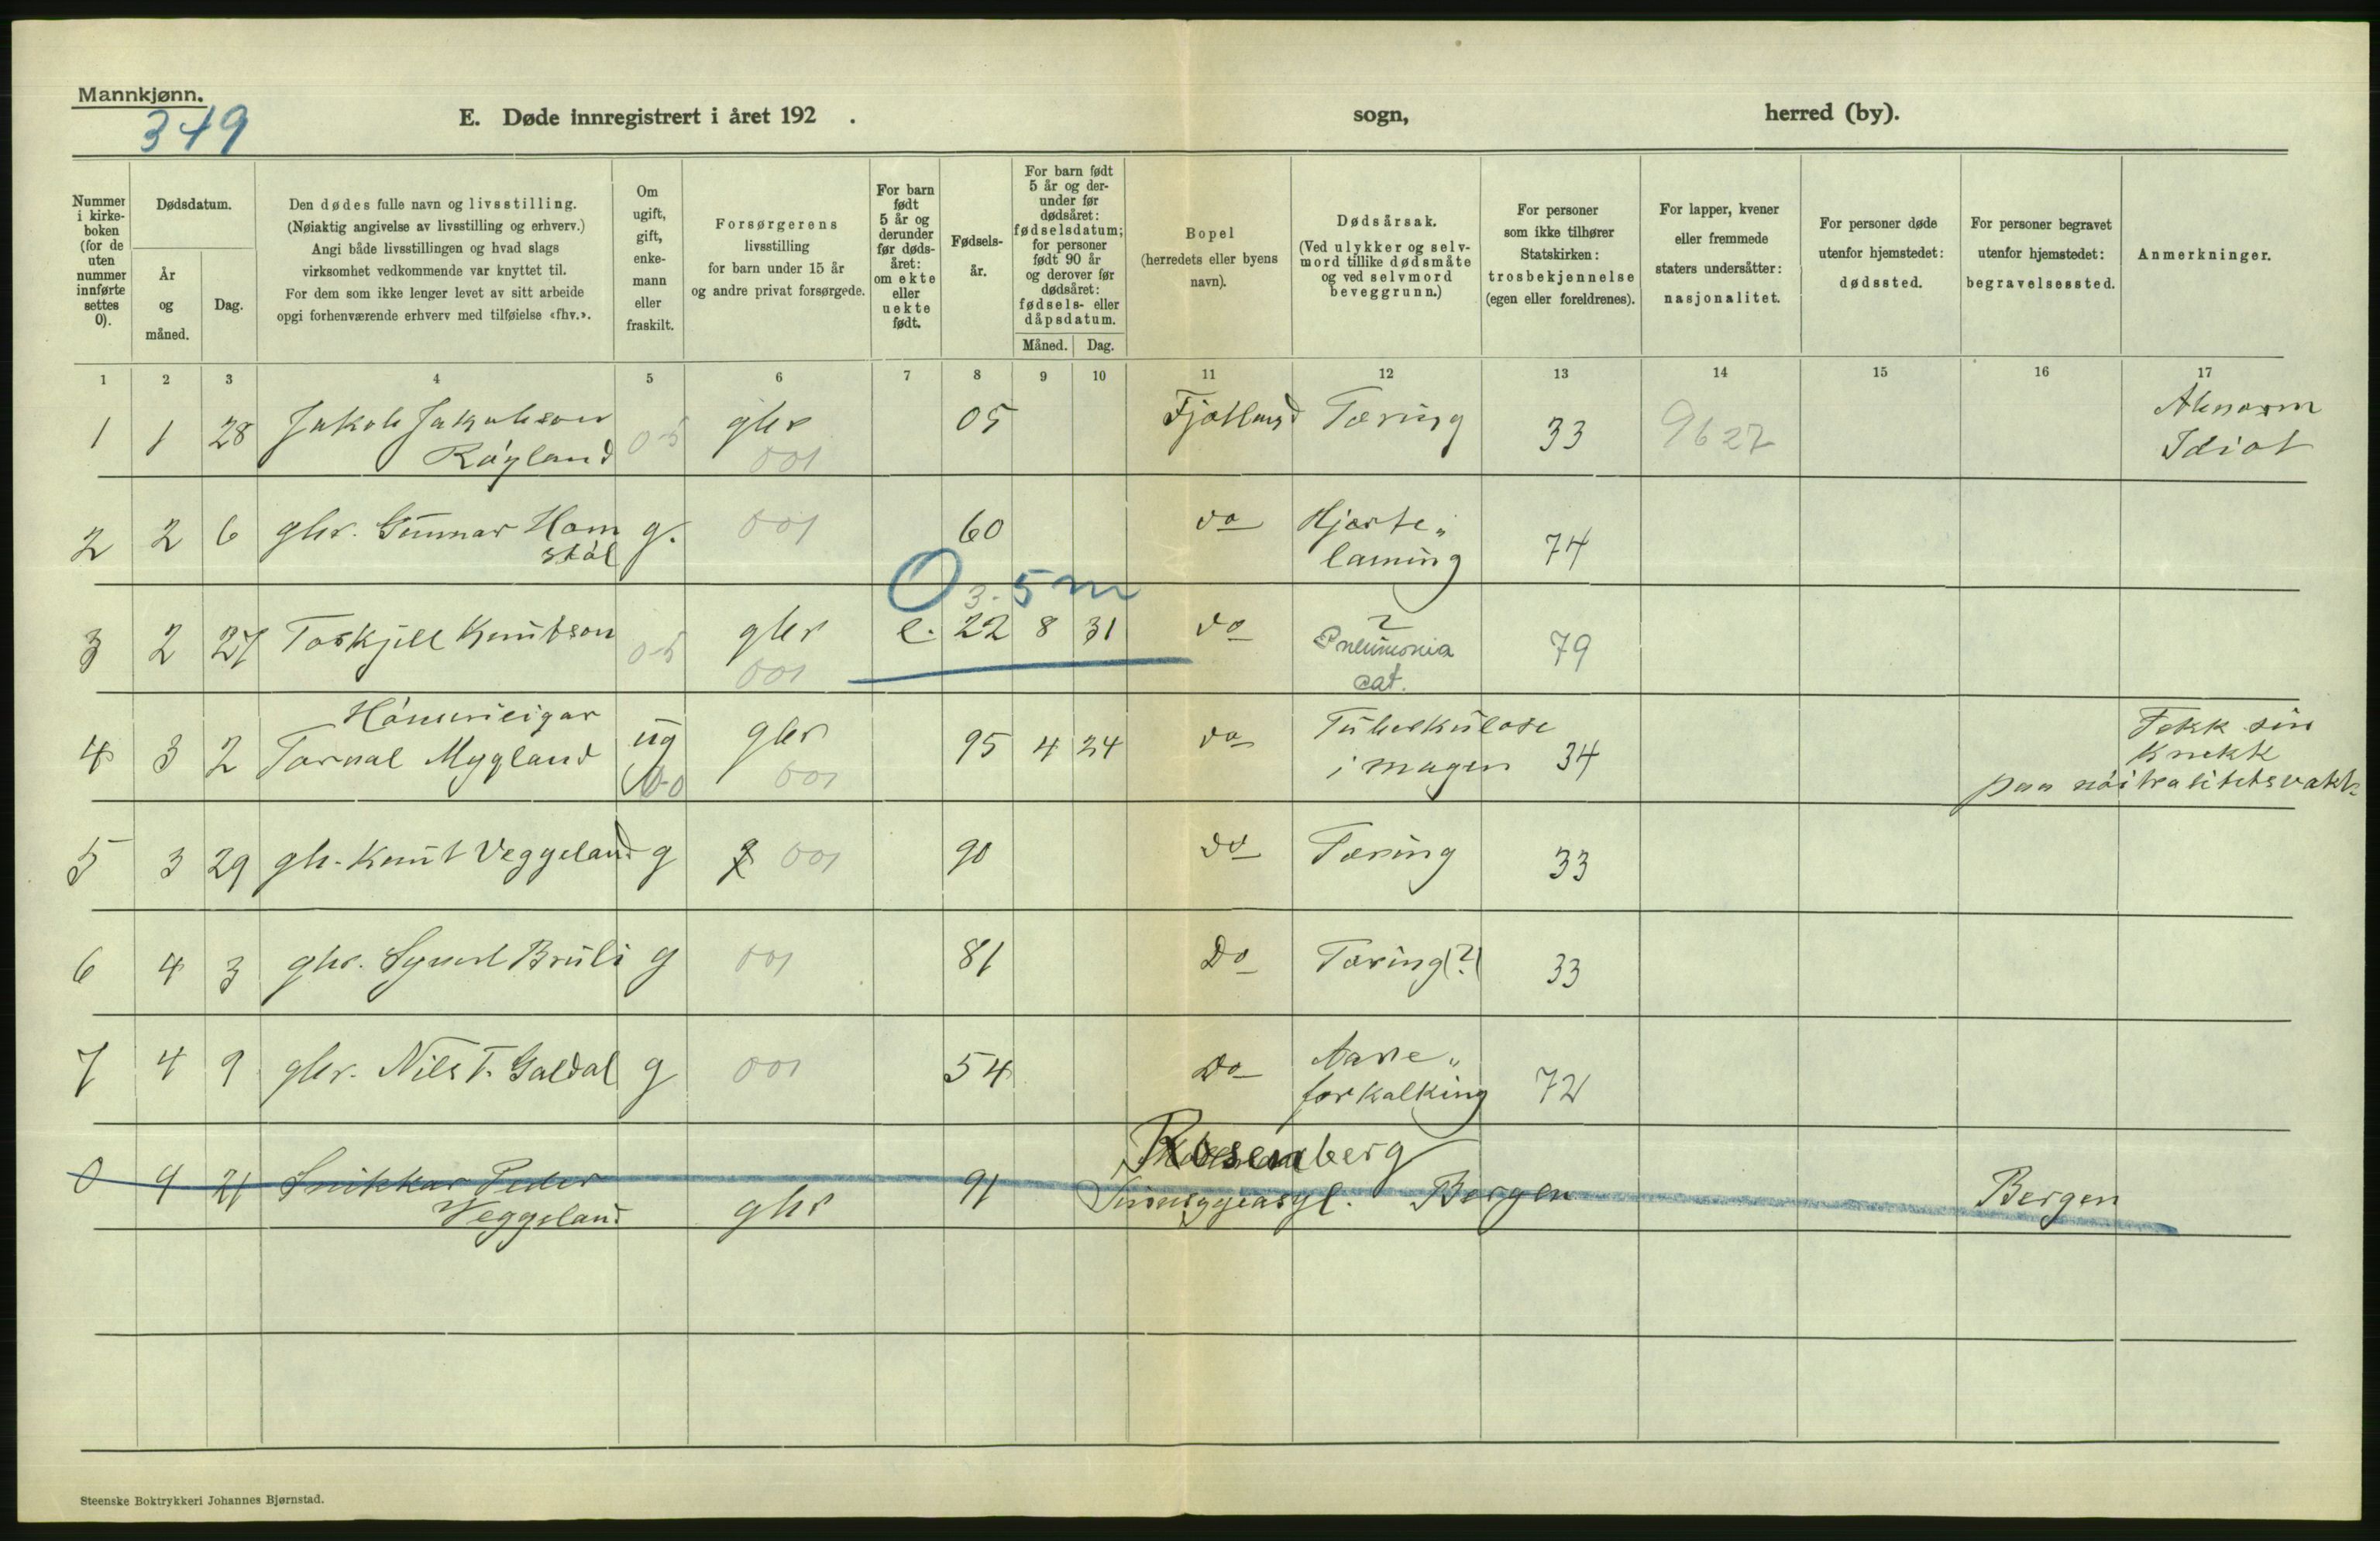 Mannkjønn.
349
E. Døde innregistrert i året 192 . sogn, herred (by).
Nummer i kirke-boken (for de uten nummer innførte settes 0).
Dødsdatum.
År og måned.
Dag.
Den dødes fulle navn og livsstilling.
(Nøiaktig angivelse av livsstilling og erhverv.)
Angi både livsstillingen og hvad slags
virksomhet vedkommende var knyttet til.
For dem som ikke lenger levet av sitt arbeide
opgi forhenværende erhverv med tilføielse «fhv.».
Om ugift, gift, enke-mann eller fraskilt.
Forsørgerens
livsstilling
for barn under 15 år
og andre privat forsørgede.
For barn født 5 år og derunder før døds-året: om ekte eller uekte født.
Fødsels-år.
For barn født 5 år og der-under før dødsåret: fødselsdatum; for personer født 90 år og derover før dødsåret: fødsels- eller dåpsdatum.
Måned. Dag.
Bopel
(herredets eller byens
navn).
Dødsårsak.
(Ved ulykker og selv-
mord tillike dødsmåte
og ved selvmord
beveggrunn.)
For personer
som ikke tilhører
Statskirken:
trosbekjennelse
(egen eller foreldrenes).
For lapper, kvener
eller fremmede
staters undersåtter:
nasjonalitet.
For personer døde
utenfor hjemstedet:
dødssted.
For personer begravet
utenfor hjemstedet:
begravelsessted.
Anmerkninger.
1 2 3 4 5 6 7 8 9 10 11 12 13 14 15 16 17
1 1 28 Jakob Jakobson gbr 05 Fjotland Tæring 33 9627 Abnorm
Røyland 001 Idiot
2 2 6 gbr. Gunnar Hom g. 001 60 do Hjarte„ 74
skål laming
O 3. 5 m
3 2 27 Torkjell Knutson gbr e. 22 8 31 do ? 79
001 Pneumonia
cat.
4 3 2 Torval Mygland ug gbr 95 4 24 do Tuberkulose 34 Fekk sin
001 i magen knekk
paa nøitralitetsvakt.
5 3 29 gb. Knut Veggeland g 001 90 do Tæring 33
6 4 3 gbr. Bruli g 001 81 Do Tæring(?) 33
7 4 9 gbr. Nils T. Galdal g 001 54 Do Aare„ 72
forkalking
Rosenberg
0 4 21 Snikkar Peder 91 Bergen Bergen
Veggeland gbr
Steenske Boktrykkeri Johannes Bjørnstad.